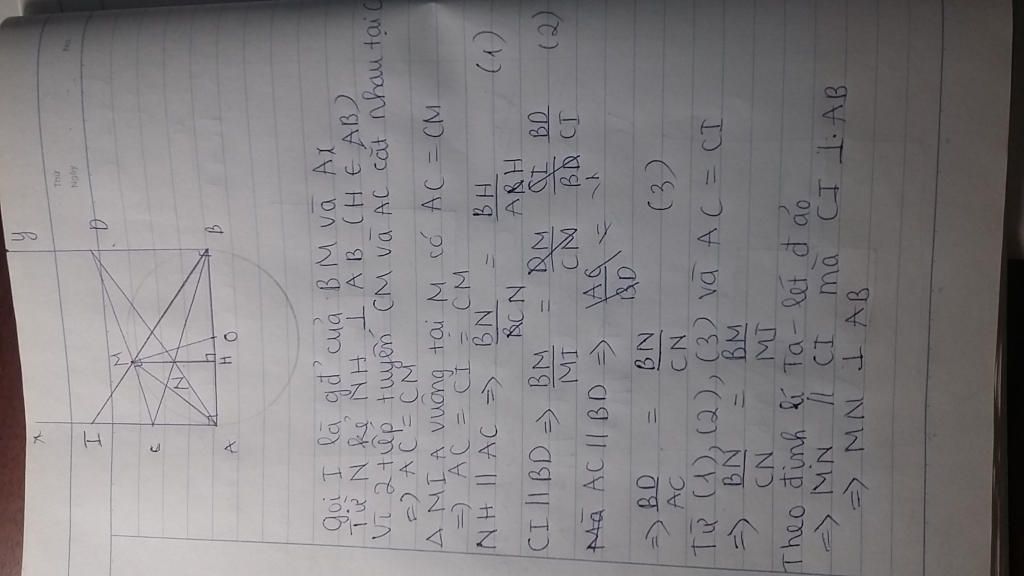 Thứ
Ngày
No.
x
y
I
D
M
C
N
A
H
O
B
gọi I là gđ của BM và Ax
Từ N kẻ NH ⊥ AB (H ∈ AB)
Vì 2 tiếp tuyến CM và AC cắt nhau tại C
=> AC = CM
Δ MIA vuông tại M có AC = CM
=> AC = CI = CM
NH // AC => BN/BCN = BH/ABH (1)
CI // BD => BM/MI = DM/CN CI/BD BD/CI (2)
Mà AC // BD => AC/BD =
=> BD/AC = BN/CN (3)
Từ (1), (2), (3) và AC = CI
=> BN/CN = BM/MI
Theo định lí Ta-lét đảo
=> MN // CI mà CI ⊥ AB
=> MN ⊥ AB